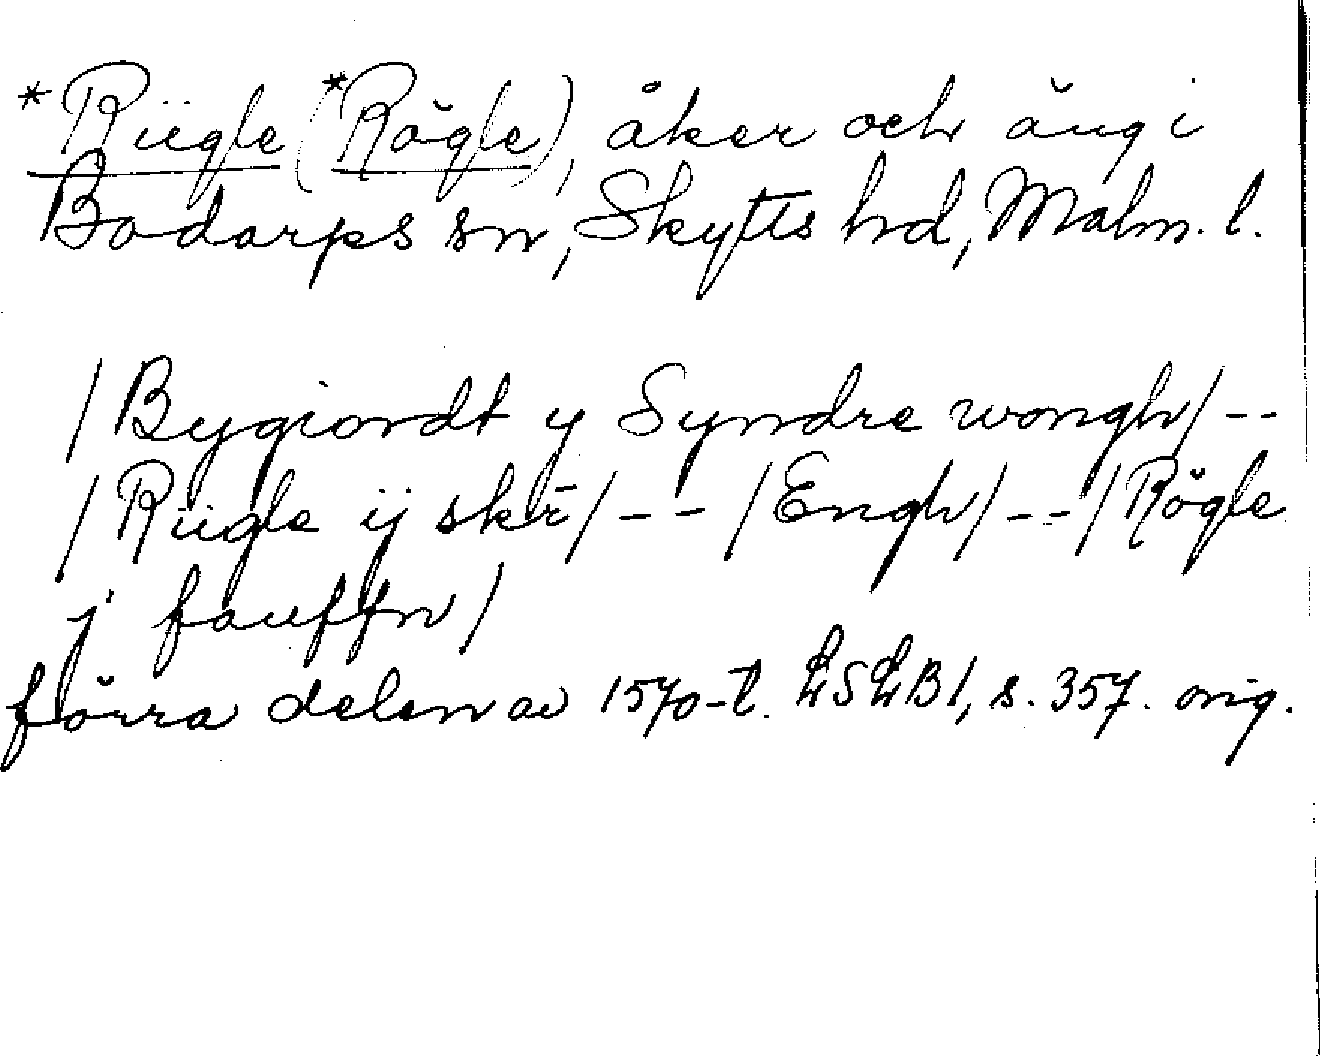 *Rüegle (*Rögle), åker och äng i
Bodarps sn, Skytts hd, Malm. l.
/Bygiordt y Syndre wongh/--
/Rüegle ij skr̄/--/Engh/--/Rögle
j fauffn/
förra delen av 1570-t. LSLB1, s. 357. orig.